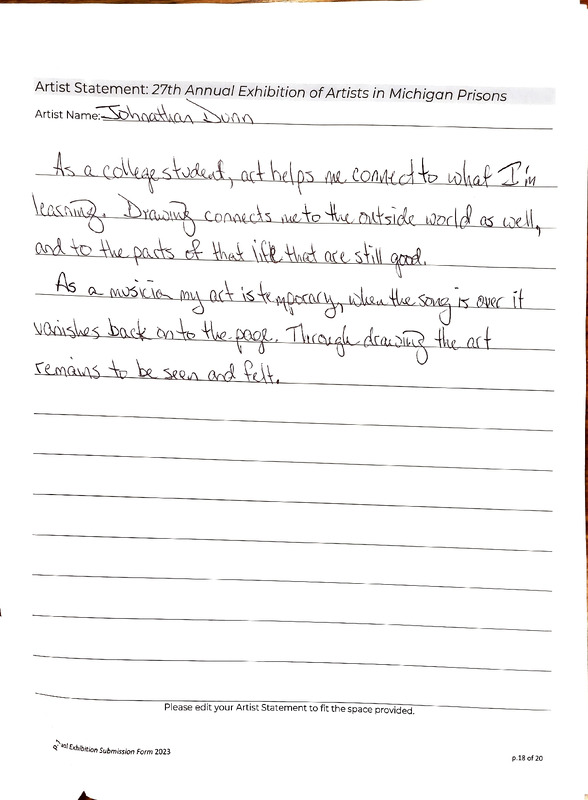 Artist Statement: 27th Annual Exhibition of Artists in Michigan Prisons
Artist Name: Johnathan Dunn
As a college student, art helps me connect to what I'm
learning. Drawing connects me to the outside world as well,
and to the parts of that life that are still good.
As a musician my art is temporary, when the song is over it
vanishes back on to the page. Through drawing the art
remains to be seen and felt.
Please edit your Artist Statement to fit the space provided.
Exhibition Submission Form 2023
p.18 of 20